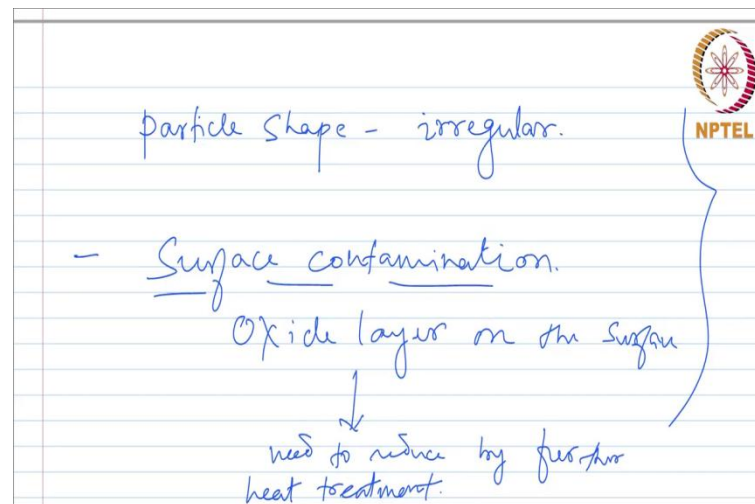 NPTEL
particle shape - irregular.
- Surface contamination.
Oxide layer on the surface
need to reduce by further
heat treatment.